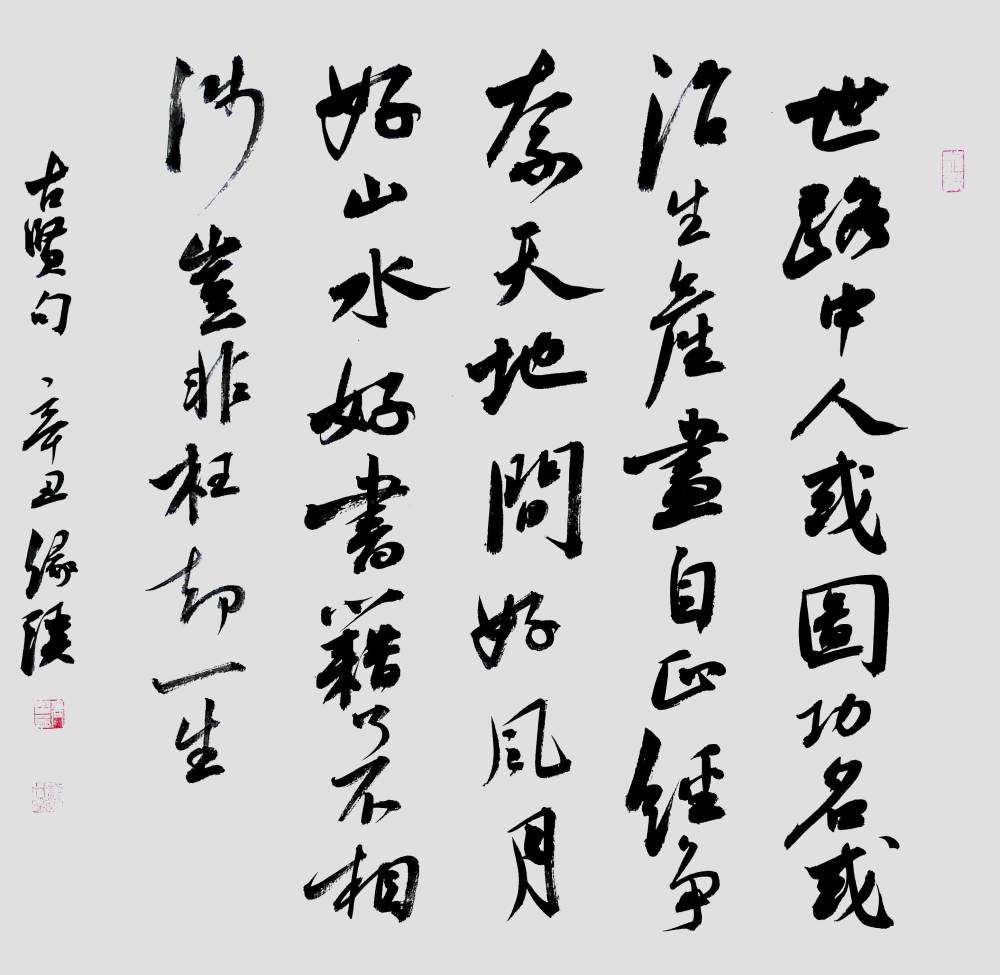 世路中人或圖功名或
治生產盡自正經争
奈天地間好風月
好山水好書籍了不相
涉豈非枉却一生
古賢句 辛丑